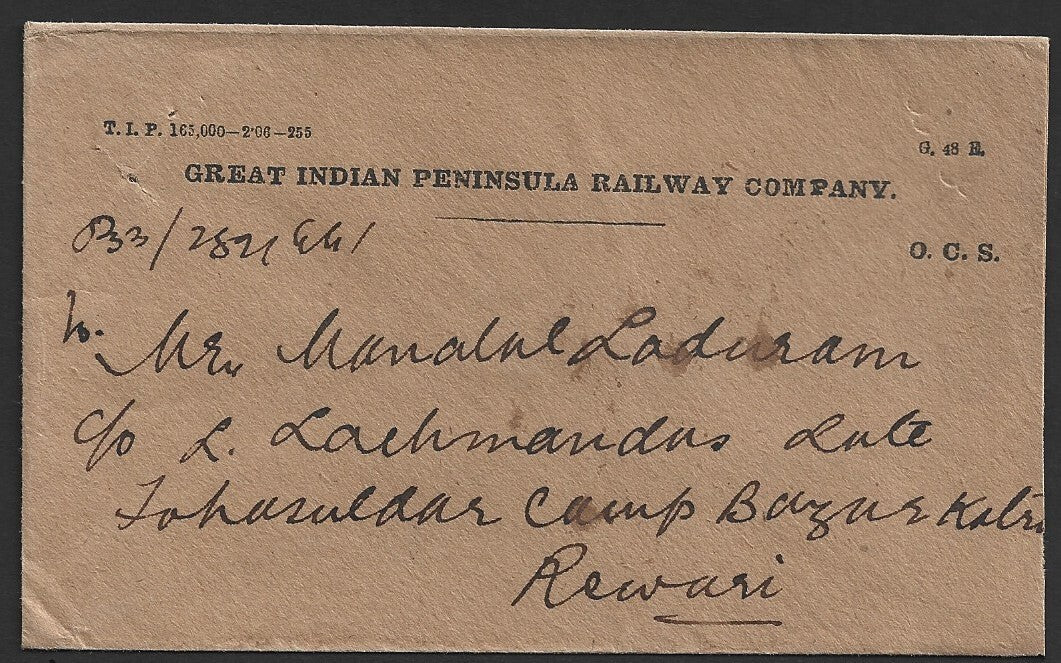 T. I. P. 165,000—2·06—255
G. 48 E.
GREAT INDIAN PENINSULA RAILWAY COMPANY.
O. C. S.
To.
Mr. Manalal Laduram
c/o L. Lachmandas Late
Tohasuldar Camp Bazar
Rewari